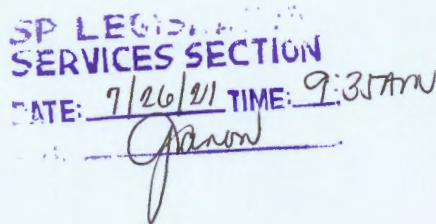 SP LEGIS
SERVICES SECTION
DATE: 7/26/21 TIME: 9:35AM